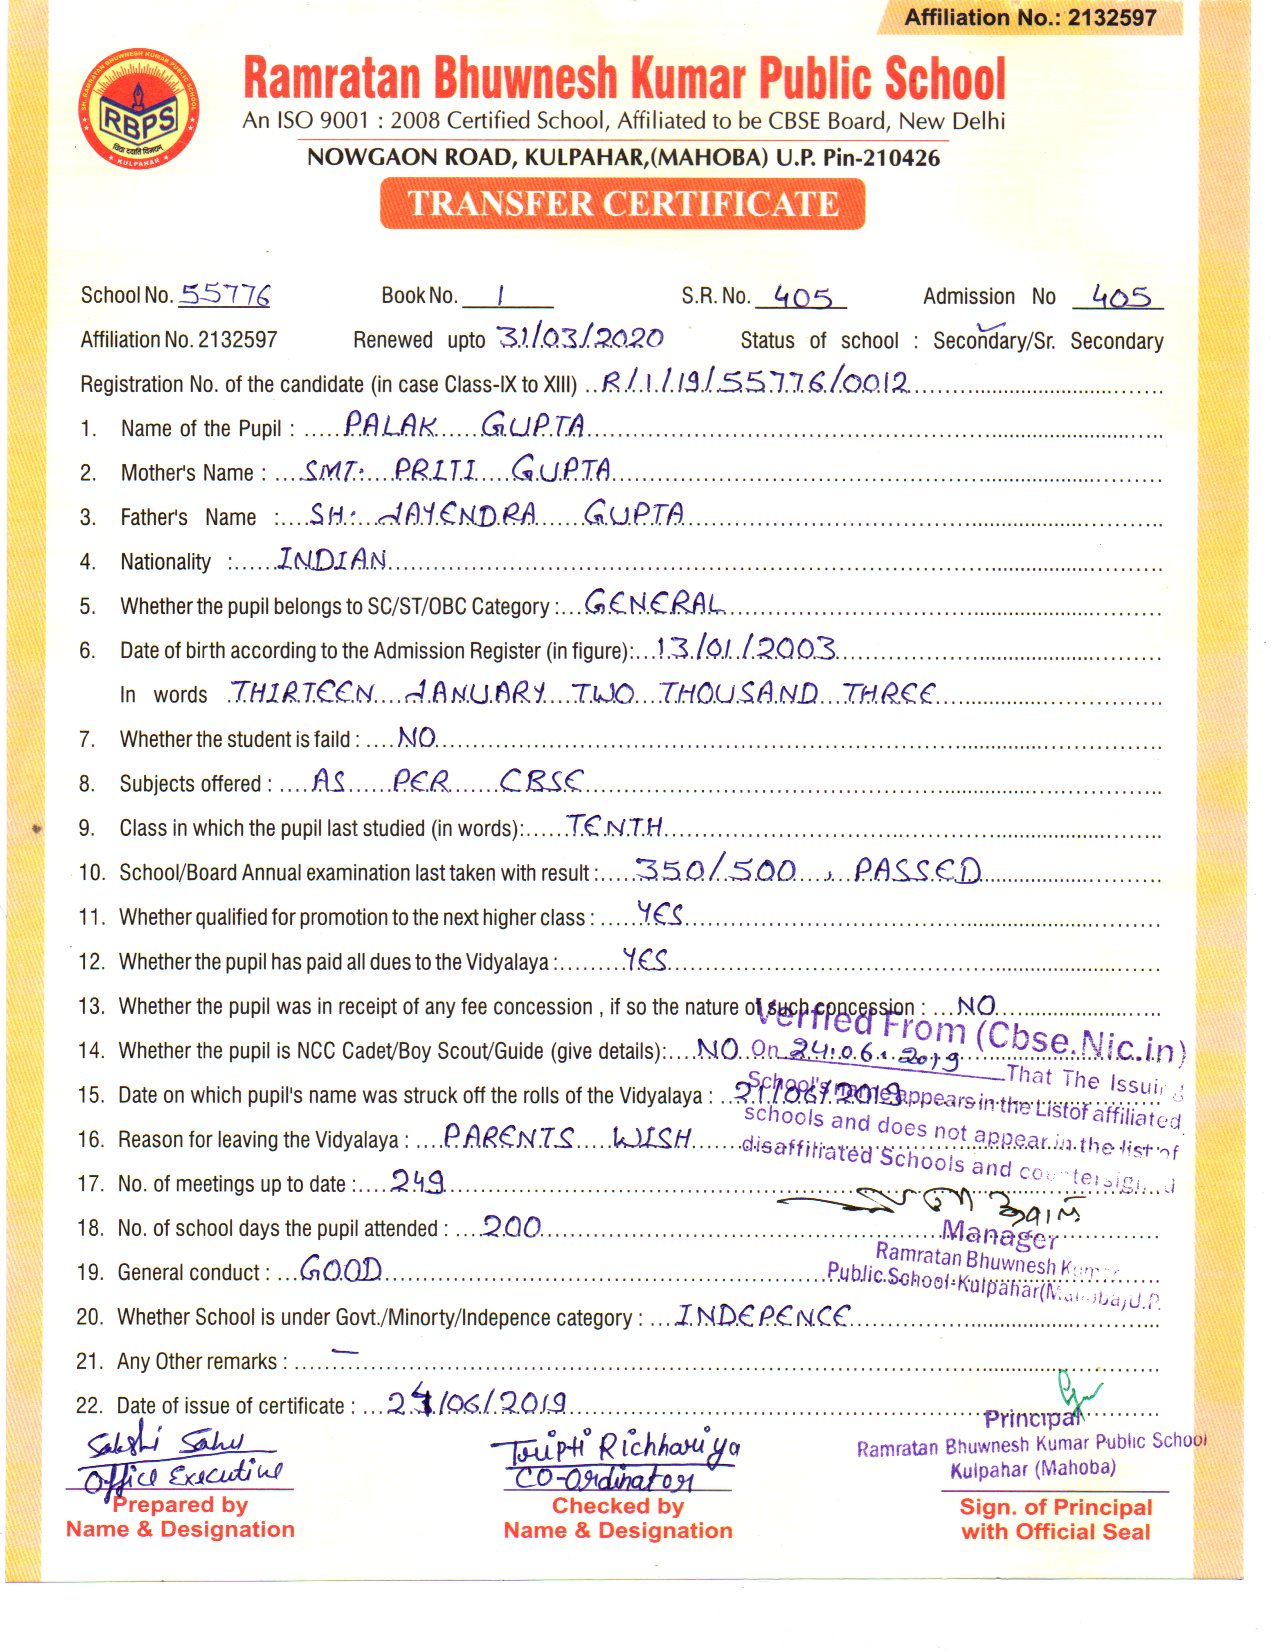 Affiliation No.: 2132597
SH. RAMRATAN BHUWNESH KUMAR PUBLIC SCHOOL
RBPS
KULPAHAR
Ramratan Bhuwnesh Kumar Public School
An ISO 9001 : 2008 Certified School, Affiliated to be CBSE Board, New Delhi
NOWGAON ROAD, KULPAHAR,(MAHOBA) U.P. Pin-210426
TRANSFER CERTIFICATE
School No. 55776 Book No. 1 S.R. No. 405 Admission No 405
Affiliation No. 2132597 Renewed upto 31/03/2020 Status of school : Secondary/Sr. Secondary
Registration No. of the candidate (in case Class-IX to XIII) R/1/19/55776/0012
1. Name of the Pupil : PALAK GUPTA
2. Mother's Name : SMT. PRITI GUPTA
3. Father's Name : SH. JAYENDRA GUPTA
4. Nationality : INDIAN
5. Whether the pupil belongs to SC/ST/OBC Category : GENERAL
6. Date of birth according to the Admission Register (in figure): 13/01/2003
In words THIRTEEN JANUARY TWO THOUSAND THREE
7. Whether the student is faild : NO
8. Subjects offered : AS PER CBSE
9. Class in which the pupil last studied (in words): TENTH
10. School/Board Annual examination last taken with result : 350/500, PASSED
11. Whether qualified for promotion to the next higher class : YES
12. Whether the pupil has paid all dues to the Vidyalaya : YES
13. Whether the pupil was in receipt of any fee concession , if so the nature of such concession : NO
Verified From (Cbse.Nic.in)
14. Whether the pupil is NCC Cadet/Boy Scout/Guide (give details): NO
On 24.06.2019 That The Issuing
15. Date on which pupil's name was struck off the rolls of the Vidyalaya : 21/06/2019
School's name appears in the List of affiliated
schools and does not appear in the list of
16. Reason for leaving the Vidyalaya : PARENTS WISH
disaffiliated Schools and countersigned
17. No. of meetings up to date : 249
18. No. of school days the pupil attended : 200
Manager
Ramratan Bhuwnesh Kumar
19. General conduct : GOOD
Public School-Kulpahar(Mahoba)U.P.
20. Whether School is under Govt./Minorty/Indepence category : INDEPENCE
21. Any Other remarks : —
22. Date of issue of certificate : 24/06/2019
Principal
Ramratan Bhuwnesh Kumar Public School
Kulpahar (Mahoba)
Sakshi Sahu
Office Executive
Prepared by
Name & Designation
Tripti Richhariya
CO-Ordinator
Checked by
Name & Designation
Sign. of Principal
with Official Seal